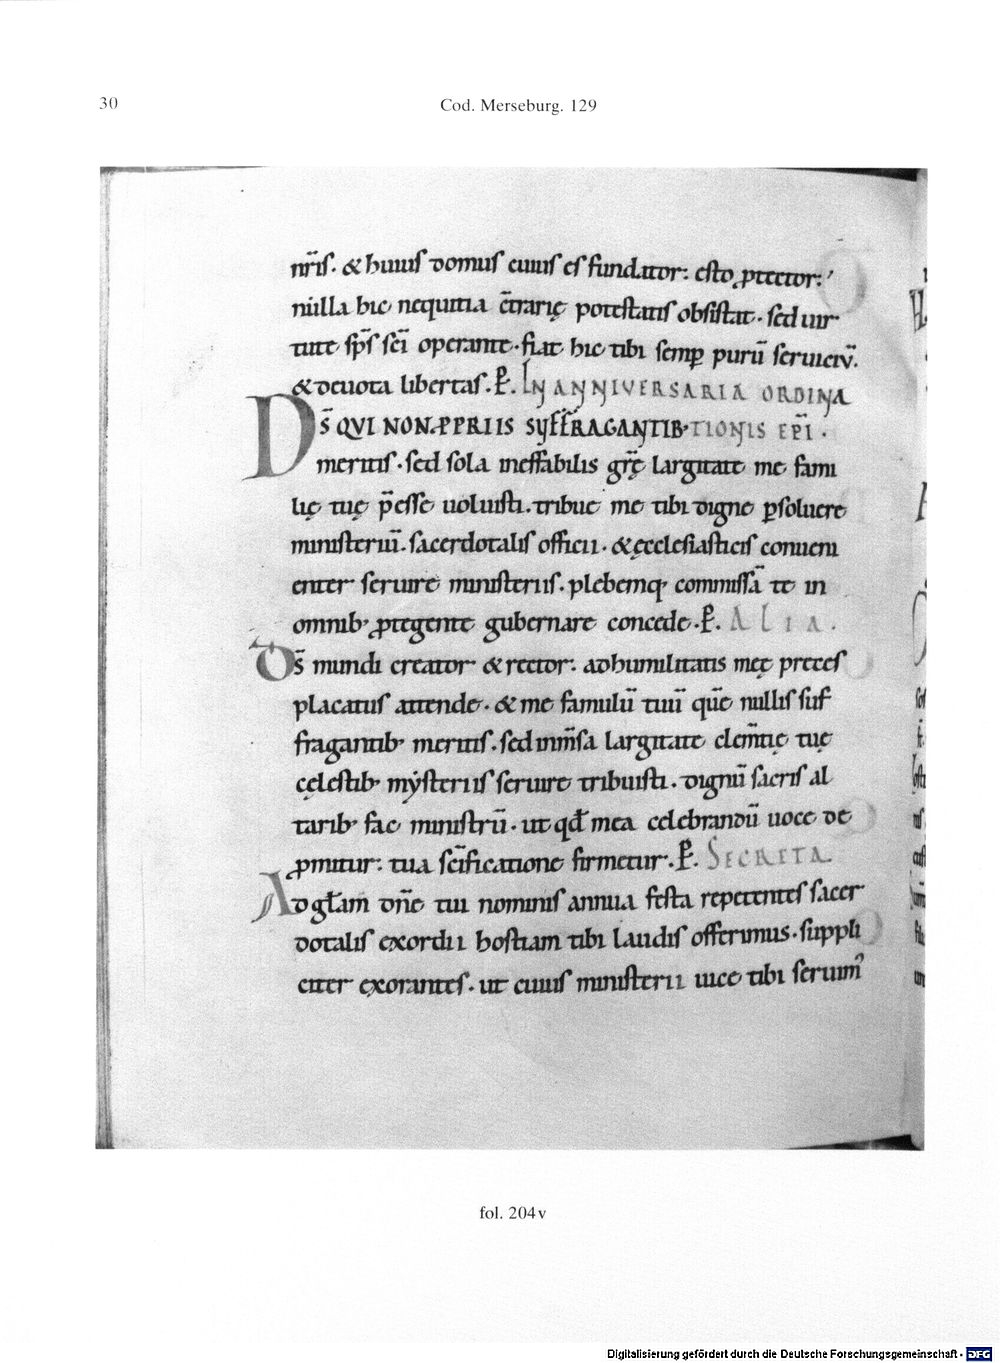 30
Cod. Merseburg. 129
nr̄is. & huius domus cuius es fundator: esto ꝓtector:'
nulla hic nequitia c̄trarię potestatis obsistat. sed uir
tute sp̄s sc̄i operante. fiat hic tibi semꝑ purū seruiciū.
& deuota libertas. P̄. IN ANNIVERSARIA ORDINA
DS̄ QVI NON PPRIIS SUFFRAGANTIB' TIONIS EP̄I.
meritis. sed sola ineffabilis gr̄ę largitate me fami
lię tuę p̄esse uoluisti. tribue me tibi digne ꝑsoluere
ministeriū. sacerdotalis officii. & ęcclesiasticis conueni
enter seruire ministeriis. plebemq; commissā te in
omnib; ꝓtegente gubernare concede. P̄. ALIA.
Ds̄ mundi creator & rector: ad humilitatis meę preces
placatus attende. & me famulū tuū quē nullis suf
fragantib; meritis. sed inm̄sa largitate clem̄tię tuę
cęlestib; mẏsteriis seruire tribuisti. dignū sacris al
tarib; fac ministrū. ut qđ mea celebrandū uoce de
ꝓmitur: tua sc̄ificatione firmetur. P̄. SECRETA
Ad gl̄am dn̄e tui nominis annua festa repetentes sacer
dotalis exordii hostiam tibi laudis offerimus. suppli
citer exorantes. ut cuius ministerii uice tibi seruim᾿
fol. 204v
Digitalisierung gefördert durch die Deutsche Forschungsgemeinschaft - DFG